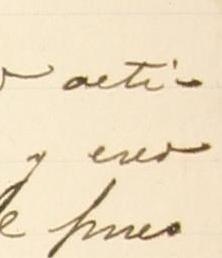 o acti-
y creo
e pues